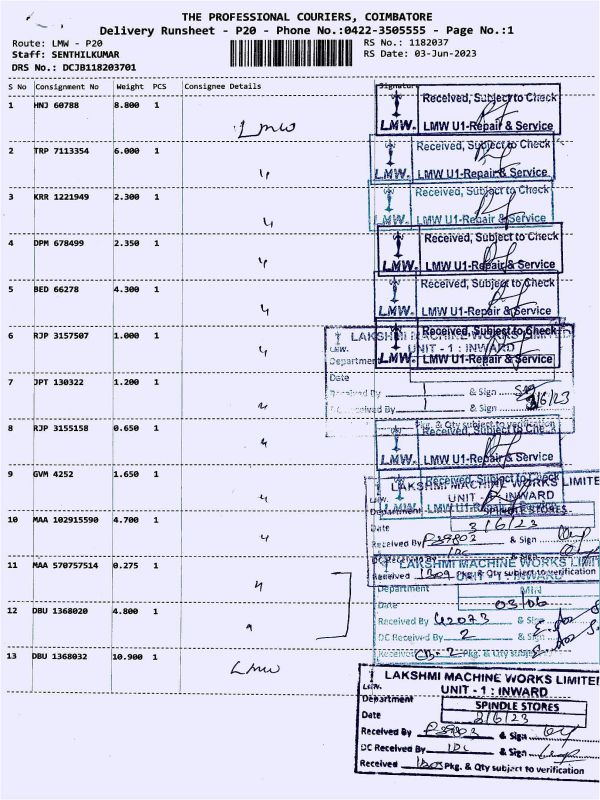 THE PROFESSIONAL COURIERS, COIMBATORE
Delivery Runsheet - P20 - Phone No.:0422-3505555 - Page No.:1
Route: LMW - P20
RS No.: 1182037
Staff: SENTHILKUMAR
RS Date: 03-Jun-2023
DRS No.: DCJB118203701
S No Consignment No Weight PCS Consignee Details Signature
1 HNJ 60788 8.800 1
Lmw
Received, Subject to Check
LMW. LMW U1-Repair & Service
2 TRP 7113354 6.000 1
Received, Subject to Check
LMW. LMW U1-Repair & Service
3 KRR 1221949 2.300 1
Received, Subject to Check
LMW. LMW U1-Repair & Service
4 DPM 678499 2.350 1
Received, Subject to Check
LMW. LMW U1-Repair & Service
5 BED 66278 4.300 1
Received, Subject to Check
LMW. LMW U1-Repair & Service
6 RJP 3157507 1.000 1
Received, Subject to Check
LAKSHMI MACHINE WORKS LIMITED
UNIT - 1 : INWARD
LMW. LMW U1-Repair & Service
Department
7 JPT 130322 1.200 1
Date
Received By 1 & Sign
3/6/23
DC Received By 1 & Sign
Pkg. & Qty subject to verification
8 RJP 3155158 0.650 1
Received, Subject to Check
LMW. LMW U1-Repair & Service
9 GVM 4252 1.650 1
Received, Subject to Check
LAKSHMI MACHINE WORKS LIMITE
UNIT - 1 : INWARD
LMW. LMW U1-Repair & Service
Department SPINDLE STORES
10 MAA 102915590 4.700 1
Date 3/6/23
Received By P39802 & Sign
DC Received By 1DC & Sign
11 MAA 570757514 0.275 1
LAKSHMI MACHINE WORKS LIMIT
Received Pkg. & Qty subject to verification
UNIT - 1 : INWARD
Department MIN
12 DBU 1368020 4.800 1
Date 03/06
Received By 42073 & Sign
DC Received By 2 & Sign
Received Pkg. & Qty subject
13 DBU 1368032 10.900 1
Lmw
LAKSHMI MACHINE WORKS LIMITE
LMW. UNIT - 1 : INWARD
Department SPINDLE STORES
Date 3/6/23
Received By P39802 & Sign
DC Received By 1DC & Sign
Received Pkg. & Qty subject to verification